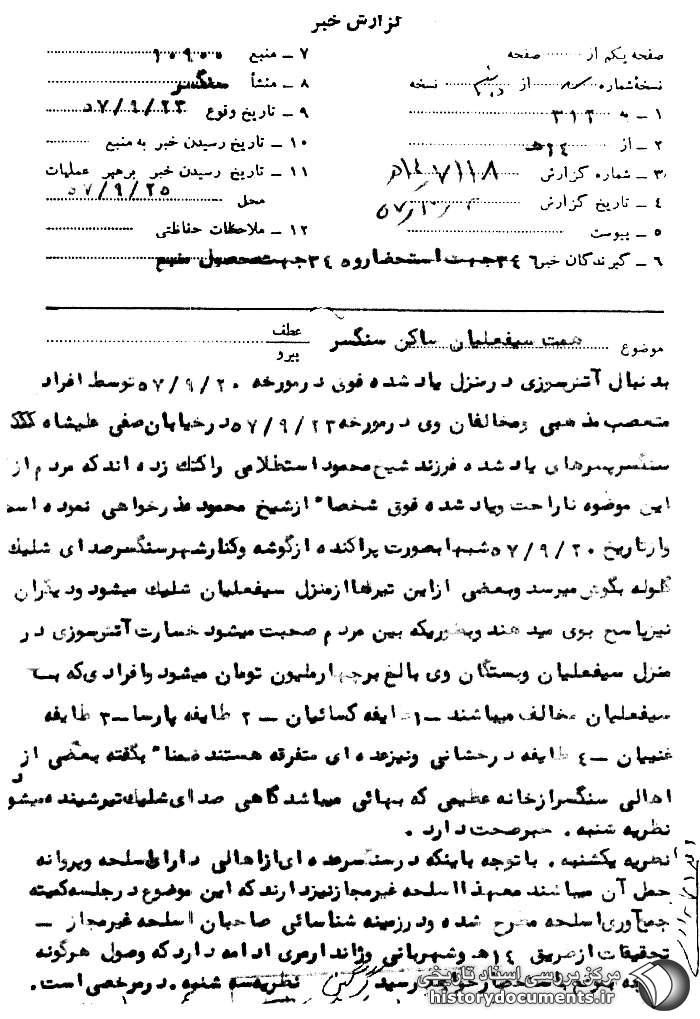 گزارش خبر
صفحه یکم از صفحه
نسخه شماره از نسخه
۱ ـ به ۳۱۲
۲ ـ از ۱۴هـ
۳ ـ شماره گزارش
۴ ـ تاریخ گزارش
۵ ـ پیوست
۶ ـ گیرندگان خبر ۳۴۶ جهت استحضار و ۳۴۵ جهت تحصیل منبع
۷ ـ منبع ۱۰۹۰۰
۸ ـ منشأ سنگسر
۹ ـ تاریخ وقوع ۵۷/۹/۲۳
۱۰ ـ تاریخ رسیدن خبر به منبع
۱۱ ـ تاریخ رسیدن خبر برهبر عملیات
محل ۵۷/۹/۲۵
۱۲ ـ ملاحظات حفاظتی
موضوع همت سیفعلیان ساکن سنگسر
عطف
پیرو
بدنبال آتشسوزی درمنزل یاد شده فوق درمورخه ۵۷/۹/۲۰ توسط افراد
متعصب مذهبی ومخالفان وی درمورخه ۵۷/۹/۲۳ درخیابان صفی علیشاه
سنگسرپسرهای یاد شده فرزند شیخ محمود استظلامی راکتك زده اند که مردم از
این موضوه ناراحت ویاد شده فوق شخصا" ازشیخ محمود عذرخواهی نموده است
وازتاریخ ۵۷/۹/۲۰ شبها بصورت پراکنده ازگوشه وکنارشهرسنگسرصدای شلیك
گلوله بگوش میرسد وبعضی ازاین تیرها ازمنزل سیفعلیان شلیك میشود ودیگران
نیزپاسخ بوی میدهند وبطوریکه بین مردم صحبت میشود خسارت آتشسوزی در
منزل سیفعلیان وبستگان وی بالغ برچهارملیون تومان میشود وافرادی که بـ
سیفعلیان مخالف میباشند ـ۱ـ طایفه کسائیان ـ ۲ طایفه پارسا ـ۳ طایفه
غنییان ـ۴ طایفه درخشانی ونیزعده ای متفرقه هستند ضمنا" بگفته بعضی از
اهالی سنگسرازخانه عظیمی که بهائی میباشد گاهی صدای شلیك تیرشنیده میشود
نظریه شنبه . خبرصحت دارد .
نظریه یکشنبه . باتوجه باینکه درسنگسرعده ای ازاهالی دارای اسلحه وپروانه
حمل آن میباشند معهذا اسلحه غیرمجازنیزدارند که این موضوع درجلسه کمیته
جمع آوری اسلحه مطرح شده ودرزمینه شناسائی صاحبان اسلحه غیرمجاز ـ
تحقیقات ازطریق ۱۴هـ وشهربانی وژاندارمری ادامه دارد که وصول هرگونه
بموقع باستحضارخواهد رسید نظریه سه شنبه . درمرخصی است .
مرکز بررسی اسناد تاریخی
historydocuments.ir